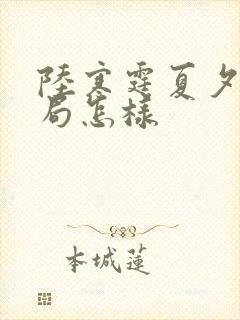 陸寒霆夏夕
局怎樣
本城蓮